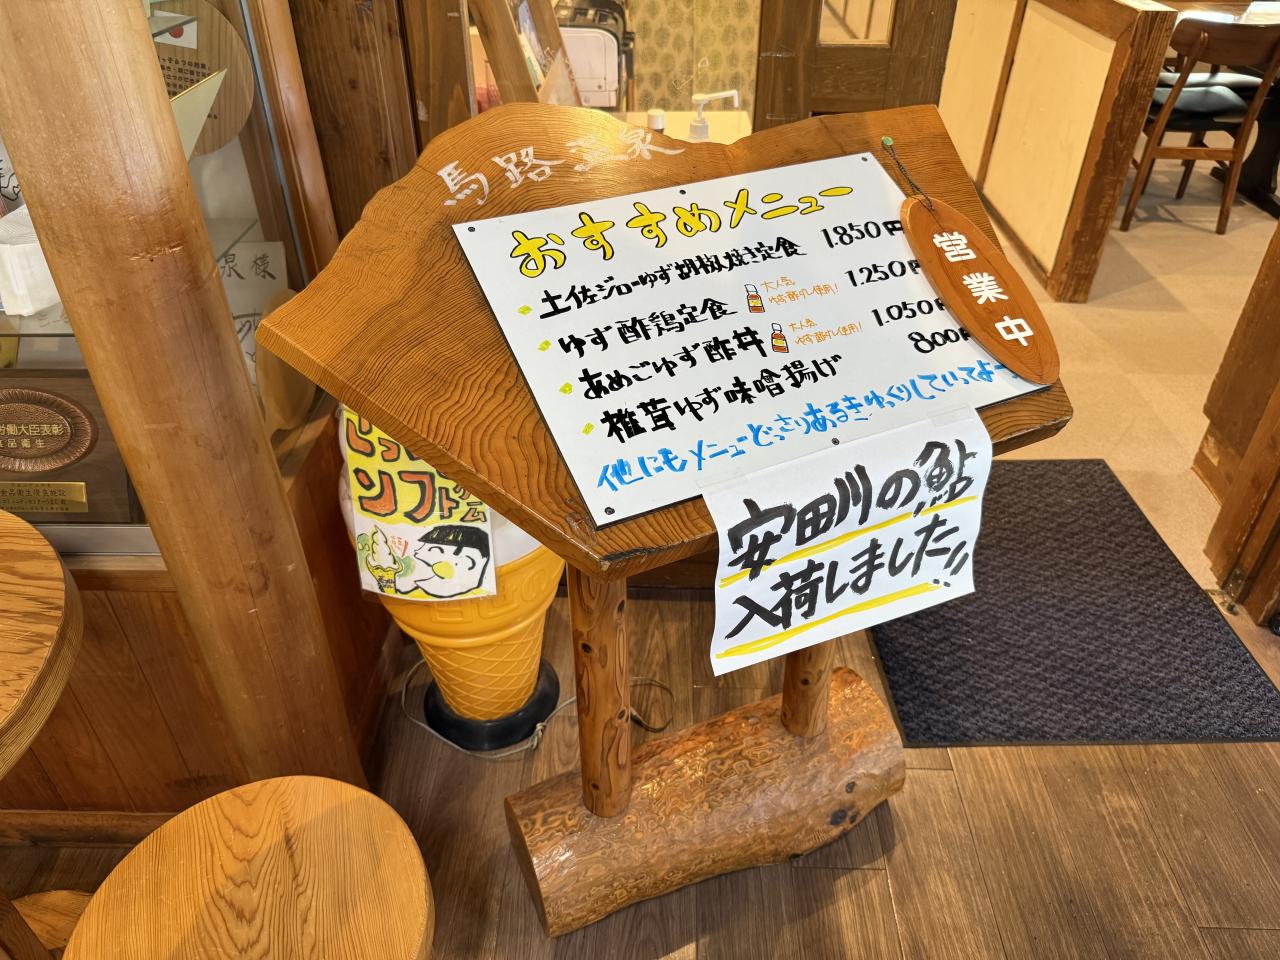 馬路温泉
おすすめメニュー
土佐ジローゆず胡椒焼き定食 1.850円
ゆず酢鶏定食 大人気 ゆず酢ダレ使用! 1.250円
あめごゆず酢丼 大人気 ゆず酢ダレ使用! 1.050円
椎茸ゆず味噌揚げ 800円
他にもメニューどっさりあるきゆっくりしていってよー
営業中
安田川の鮎
入荷しました!!
ソフト
労働大臣表彰
食品衛生
泉様